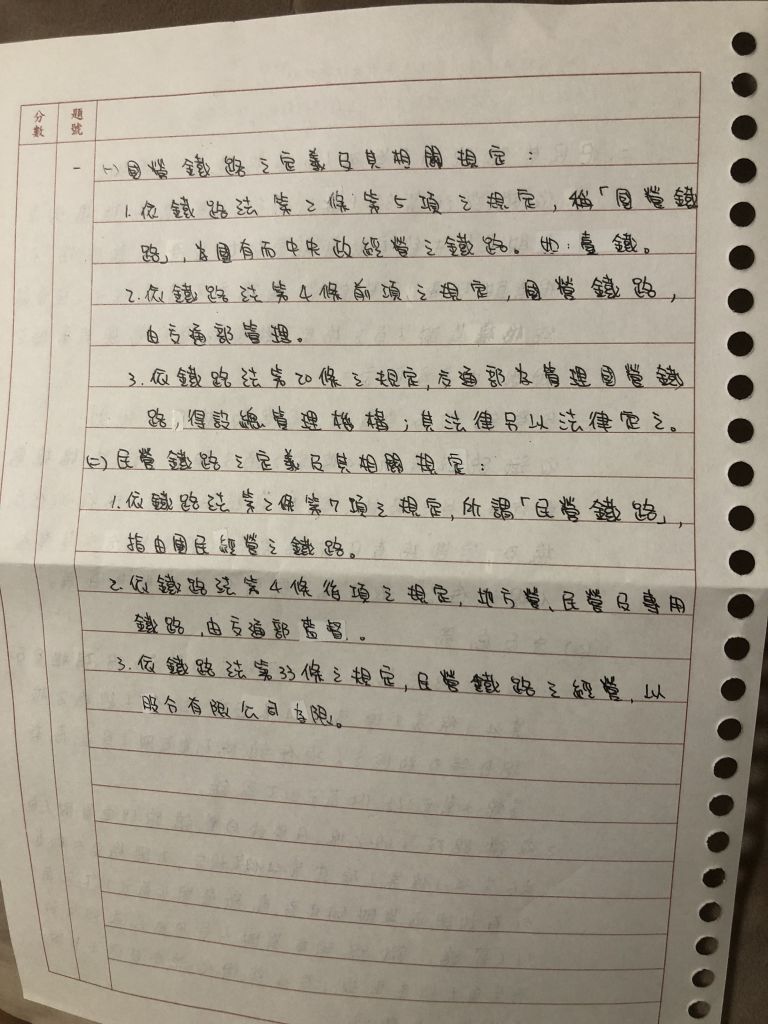 分數
題號
一
(一)國營鐵路之定義及其相關規定：
1.依鐵路法第2條第5項之規定，稱「國營鐵
路」，為國有而中央政經營之鐵路。如：臺鐵。
2.依鐵路法第4條前項之規定，國營鐵路，
由交通部管理。
3.依鐵路法第20條之規定，交通部為管理國營鐵
路，得設總管理機構；其法律另以法律定之。
(二)民營鐵路之定義及其相關規定：
1.依鐵路法第2條第7項之規定，所謂「民營鐵路」，
指由國民經營之鐵路。
2.依鐵路法第4條後項之規定，地方營、民營及專用
鐵路，由交通部監督。
3.依鐵路法第33條之規定，民營鐵路之經營，以
股份有限公司為限。